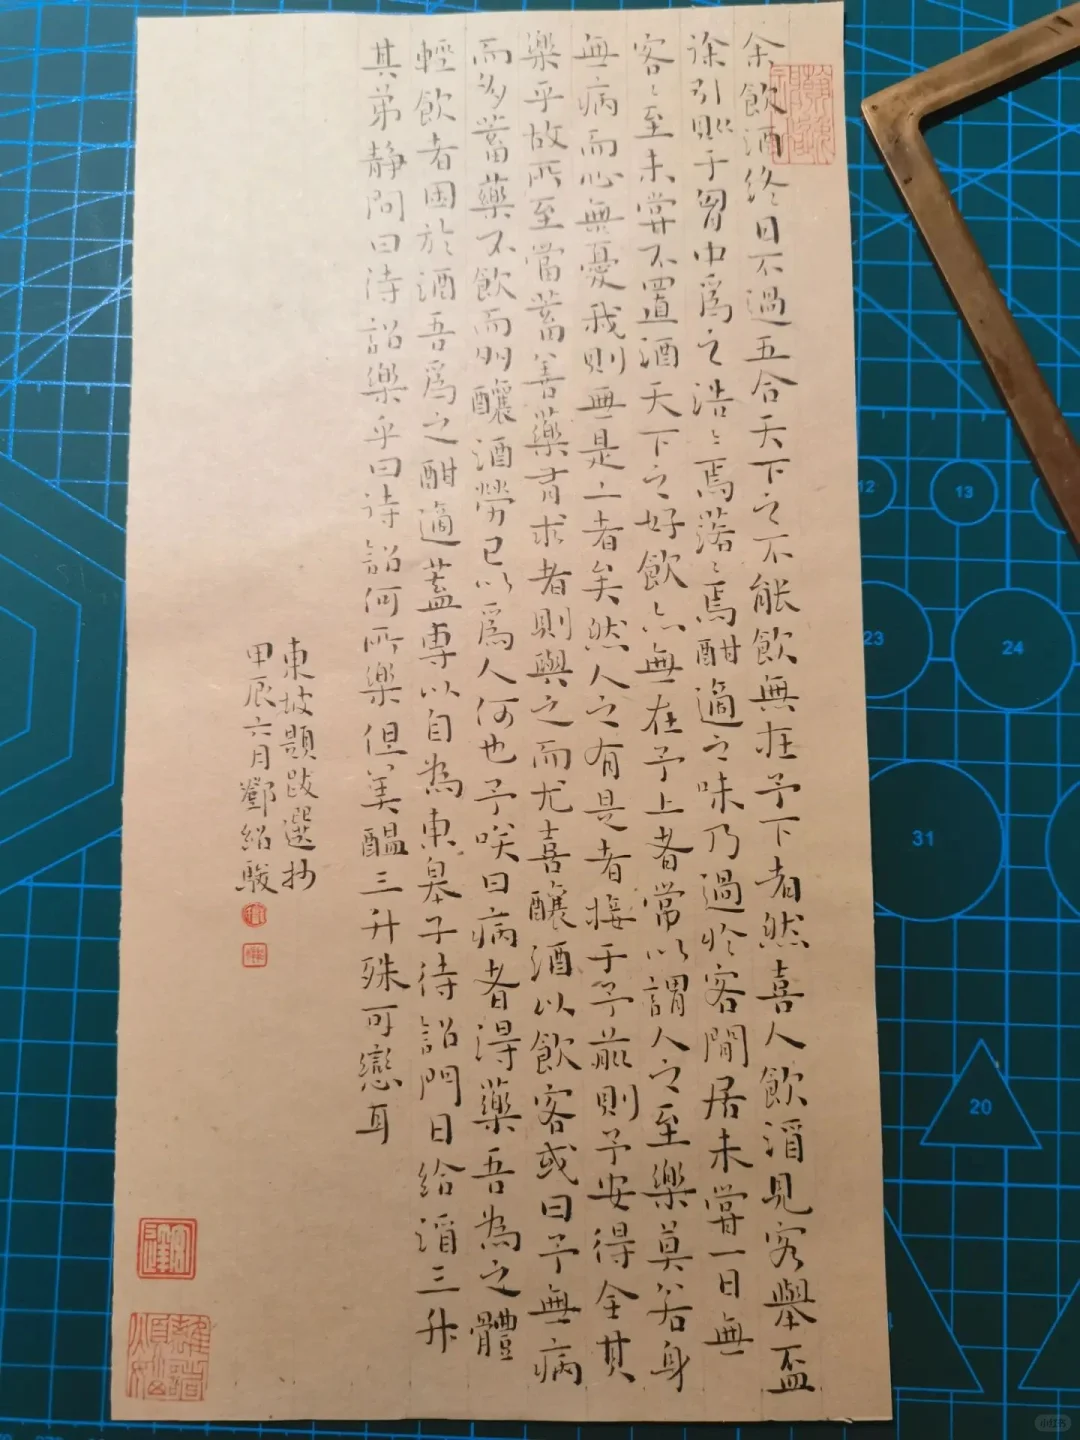 余飲酒終日不過五合天下之不能飲無在予下者然喜人飲酒見客舉盃
徐引則于胷中爲之浩〻焉落〻焉酣適之味乃過於客閒居未嘗一日無
客〻至未嘗不置酒天下之好飲亦無在予上者常以謂人之至樂莫若身
無病而心無憂我則無是二者矣然人之有是者接于予前則予安得全其
樂乎故所至當蓄善藥有求者則與之而尤喜釀酒以飲客或曰予無病
而多蓄藥不飲而多釀酒勞己以爲人何也予咲曰病者得藥吾為之體
輕飲者困於酒吾爲之酣適蓋專以自為東皋子待詔門日給酒三升
其弟靜問曰待詔樂乎曰待詔何所樂但美醖三升殊可戀耳
東坡題跋選抄
甲辰六月鄧紹駿
12
13
23
24
31
20